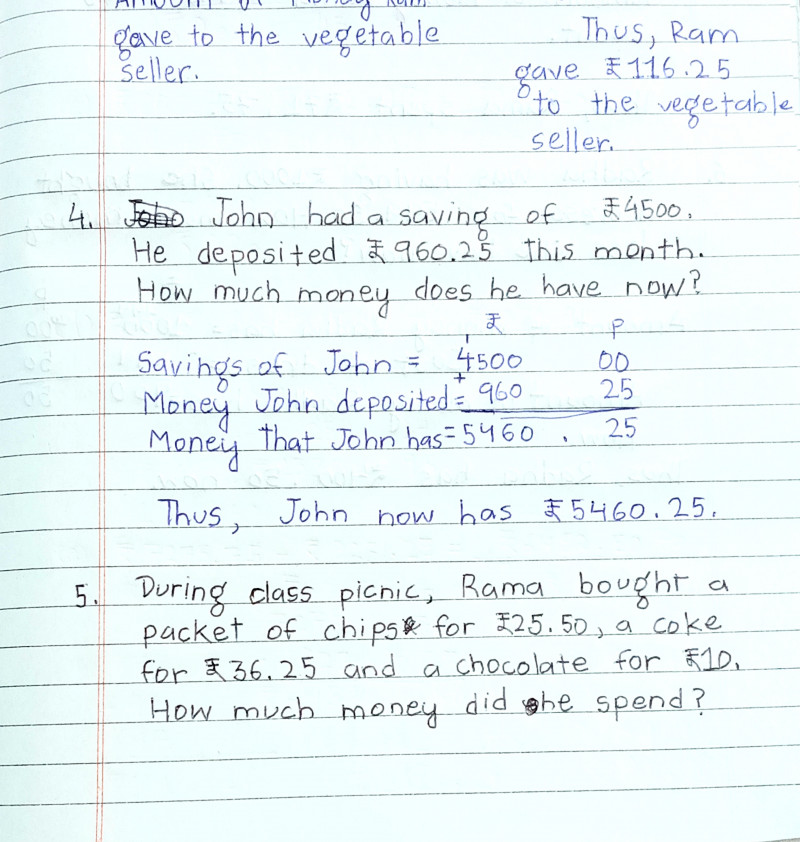 Amount of Money Ram
gave to the vegetable
seller.
Thus, Ram
gave ₹116.25
to the vegetable
seller.
4. John had a saving of ₹4500.
He deposited ₹960.25 this month.
How much money does he have now?
₹ P
1
Savings of John = 4500 00
Money John deposited = + 960 25
Money that John has = 5460 . 25
Thus, John now has ₹5460.25.
5. During class picnic, Rama bought a
packet of chips for ₹25.50, a coke
for ₹36.25 and a chocolate for ₹10.
How much money did she spend?